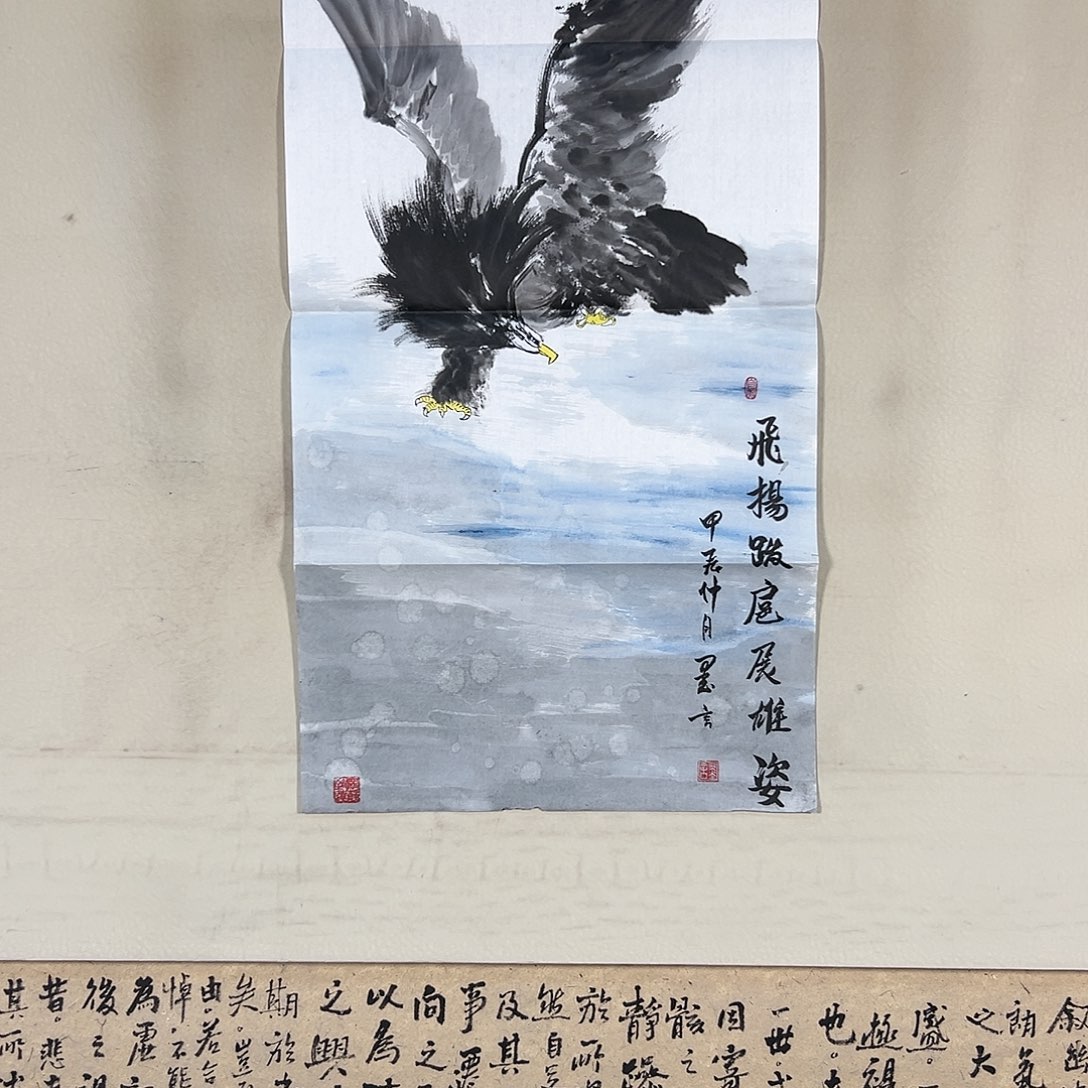 飛揚跋扈展雄姿
甲辰仲月墨言
叙幽
朗氣
之大
盛
極視
也大
一世
因寄
骸之
靜躁
於所
然自
及其
事
向之
以為
之興
期於
矣豈
由若合
悼不能
為虛
後之視
昔悲
其所